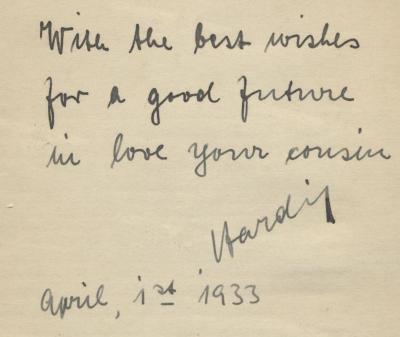 With the best wishes
for a good future
in love your cousin
Hardij
April, 1st 1933